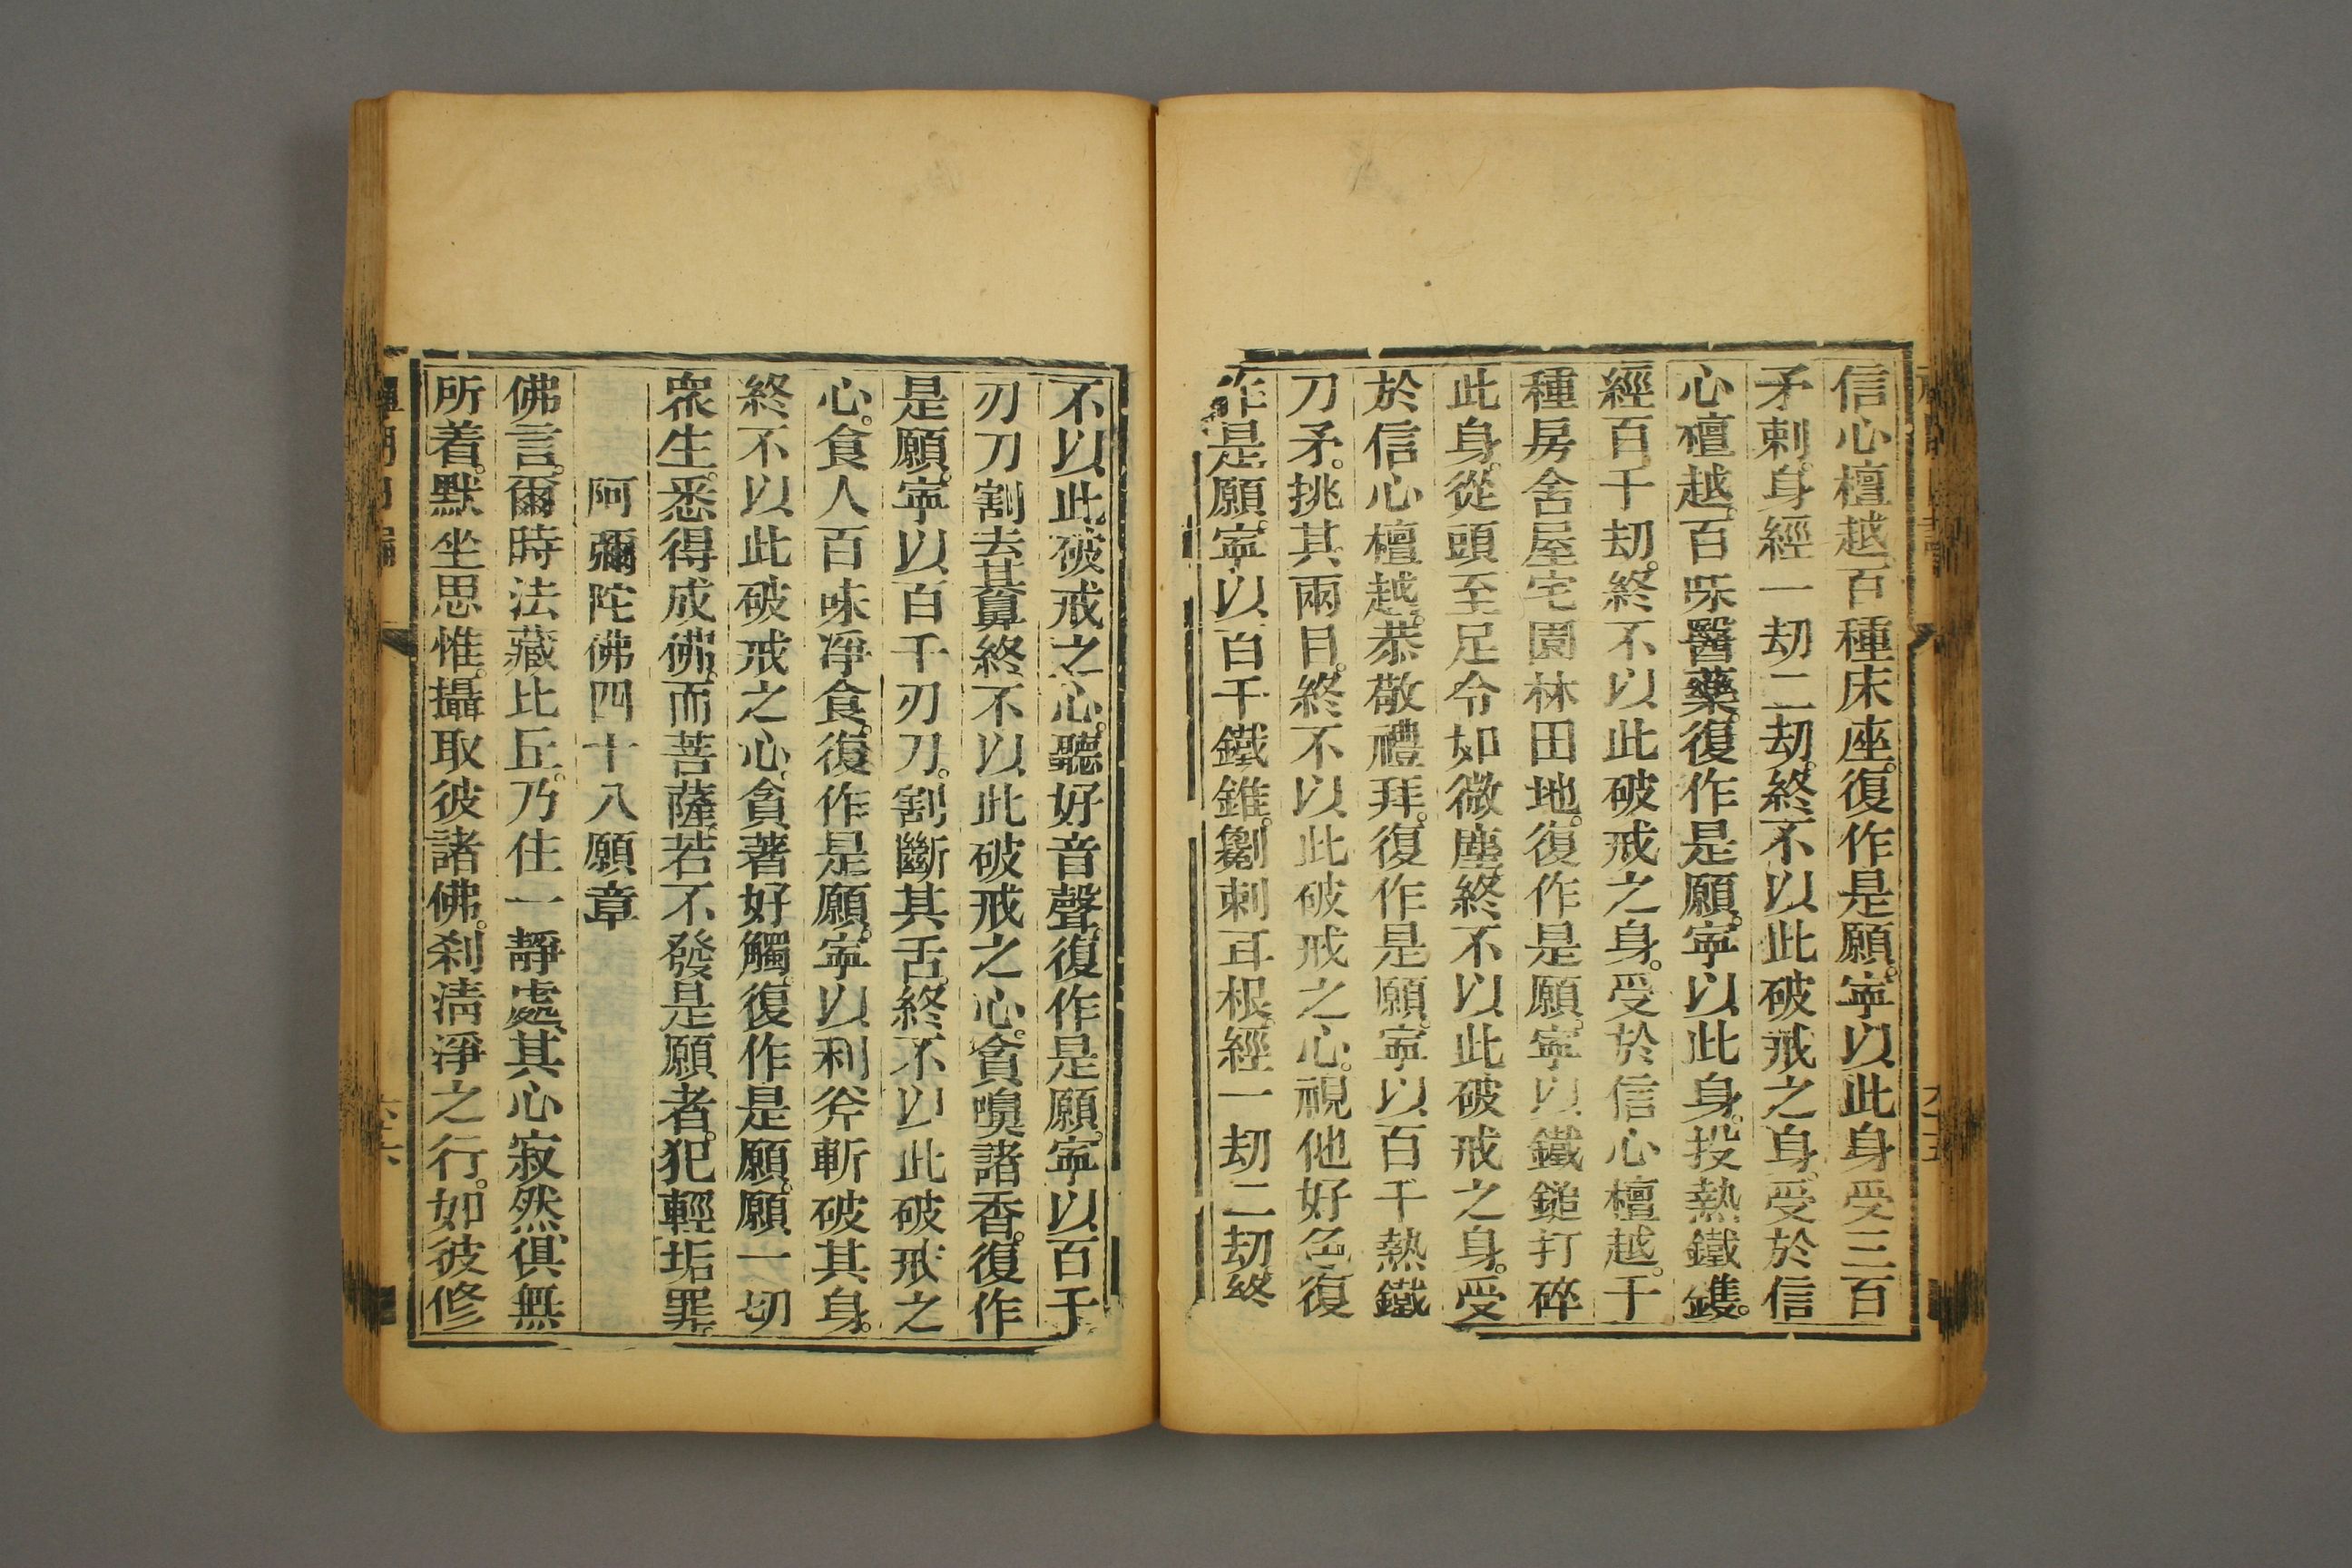 信心檀越。百種床座。復作是願。寧以此身受三百
矛刺。身經一劫二劫。終不以此破戒之身。受於信
心檀越。百味醫藥。復作是願。寧以此身。投熱鐵鑊。
經百千劫。終不以此破戒之身。受於信心檀越。千
種房舍屋宅園林田地。復作是願。寧以鐵鎚打碎
此身。從頭至足令如微塵。終不以此破戒之身。受
於信心檀越。恭敬禮拜。復作是願。寧以百千熱鐵
刀矛。挑其兩目。終不以此破戒之心。視他好色。復
作是願。寧以百千鐵錐。劖刺耳根。經一劫二劫。終
不以此破戒之心。聽好音聲。復作是願。寧以百千
刃刀割去其鼻。終不以此破戒之心。貪嗅諸香。復作
是願。寧以百千刃刀。割斷其舌。終不以此破戒之
心。食人百味凈食。復作是願。寧以利斧斬破其身。
終不以此破戒之心。貪著好觸。復作是願。願一切
衆生。悉得成佛。而菩薩。若不發是願者。犯輕垢罪。
阿彌陀佛四十八願章
佛言。爾時法藏比丘。乃住一靜處。其心寂然。俱無
所着。默坐思惟。攝取彼諸佛。刹清淨之行。如彼修